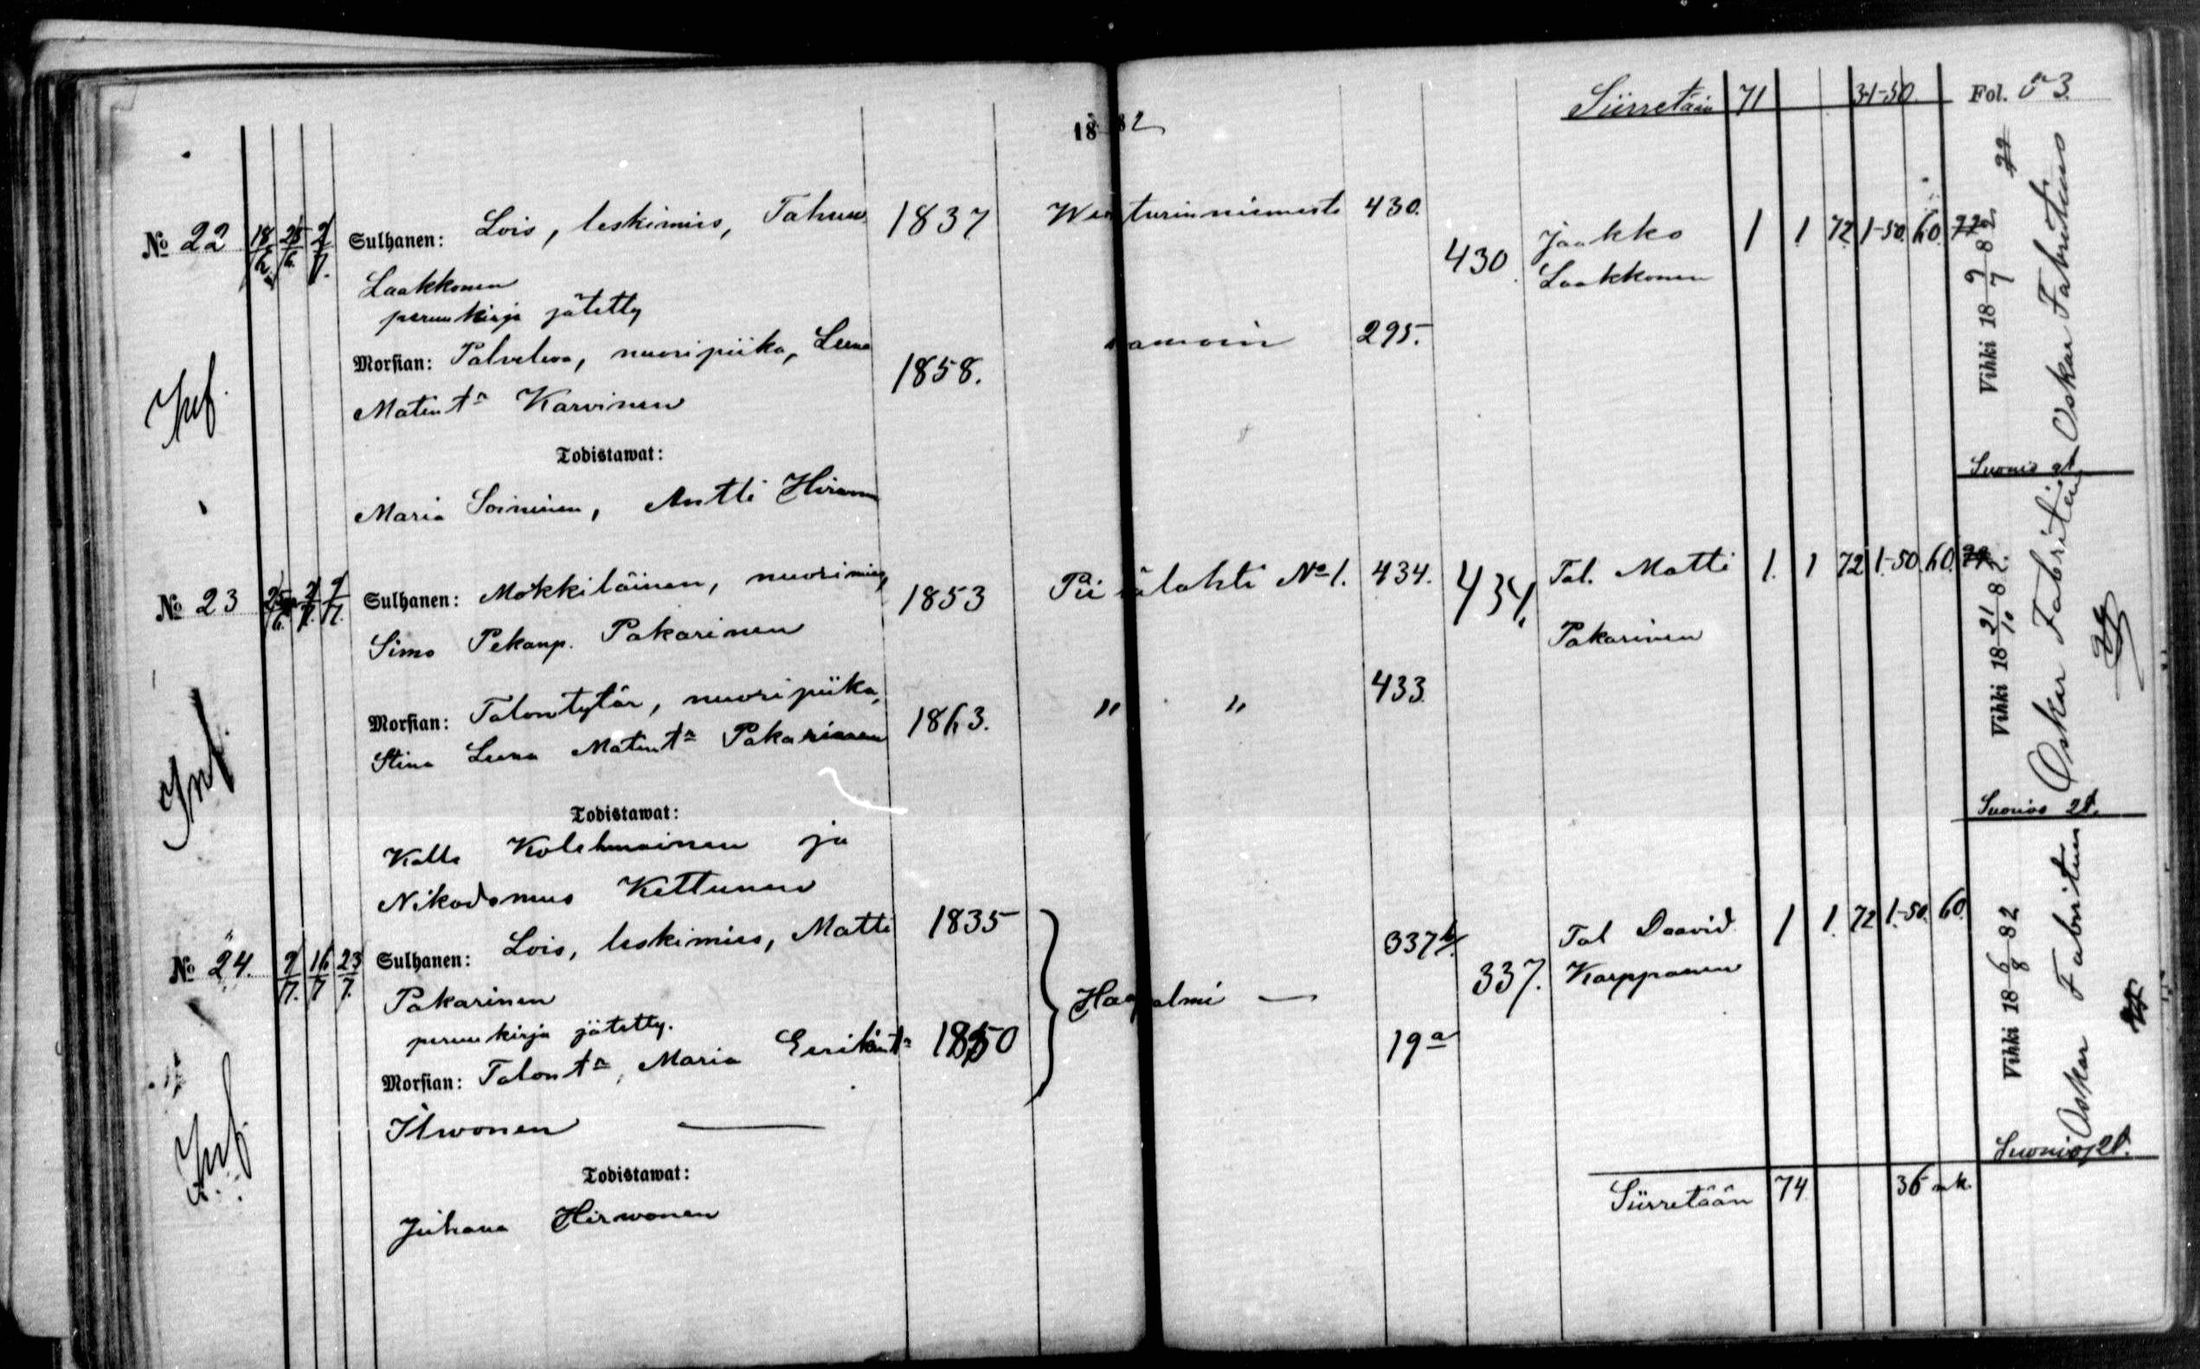 1882
Siirretään 71 31-50. Fol. 53.
№ 22 18/6 25/6 2/7. Sulhanen: Lois, leskimies, Tahwo 1837 430. 430 Jaakko 1 1 72 1-50. 60.
Laakkonen Laakkonen
perunkirja jätetty
Morsian: Palveleva, nuoripiika, Leena 1858. samoin 295.
Matint:r Karvinen
Inf.
Todistawat:
Maria Soininen, Antti
Vihki 18 9/7 82
Oskar Fabritius
Suonio
№ 23 25/6. 2/7. 9/7. Sulhanen: Mökkiläinen, nuorimies, 1853 Piilälahti №1. 434. 434. Tal. Matti 1. 1 72 1-50. 60.
Simo Pekanp. Pakarinen Pakarinen
Morsian: Talontytär, nuoripiika, 1863. " " 433
Stina Leena Matint:r Pakarinen
Inf.
Todistawat:
Kalle Kolehmainen ja
Nikodemus Kettunen
Vihki 18 21/10 82.
Oskar Fabritius
Suonio
№ 24. 9/7. 16/7 23/7. Sulhanen: Lois, leskimies, Matti 1835 337 b/. 337. Tal Daavid 1 1. 72 1.-50. 60.
Pakarinen Haapalmi — Karppanen
perunkirja jätetty.
Morsian: Talont:r, Maria Eerikint:r 1850 19 a
Ilwonen
Inf.
Todistawat:
Juhana Hirwonen
Vihki 18 6/8 82
Oskar Fabritius
Suonio
Siirretään 74 36 mk.